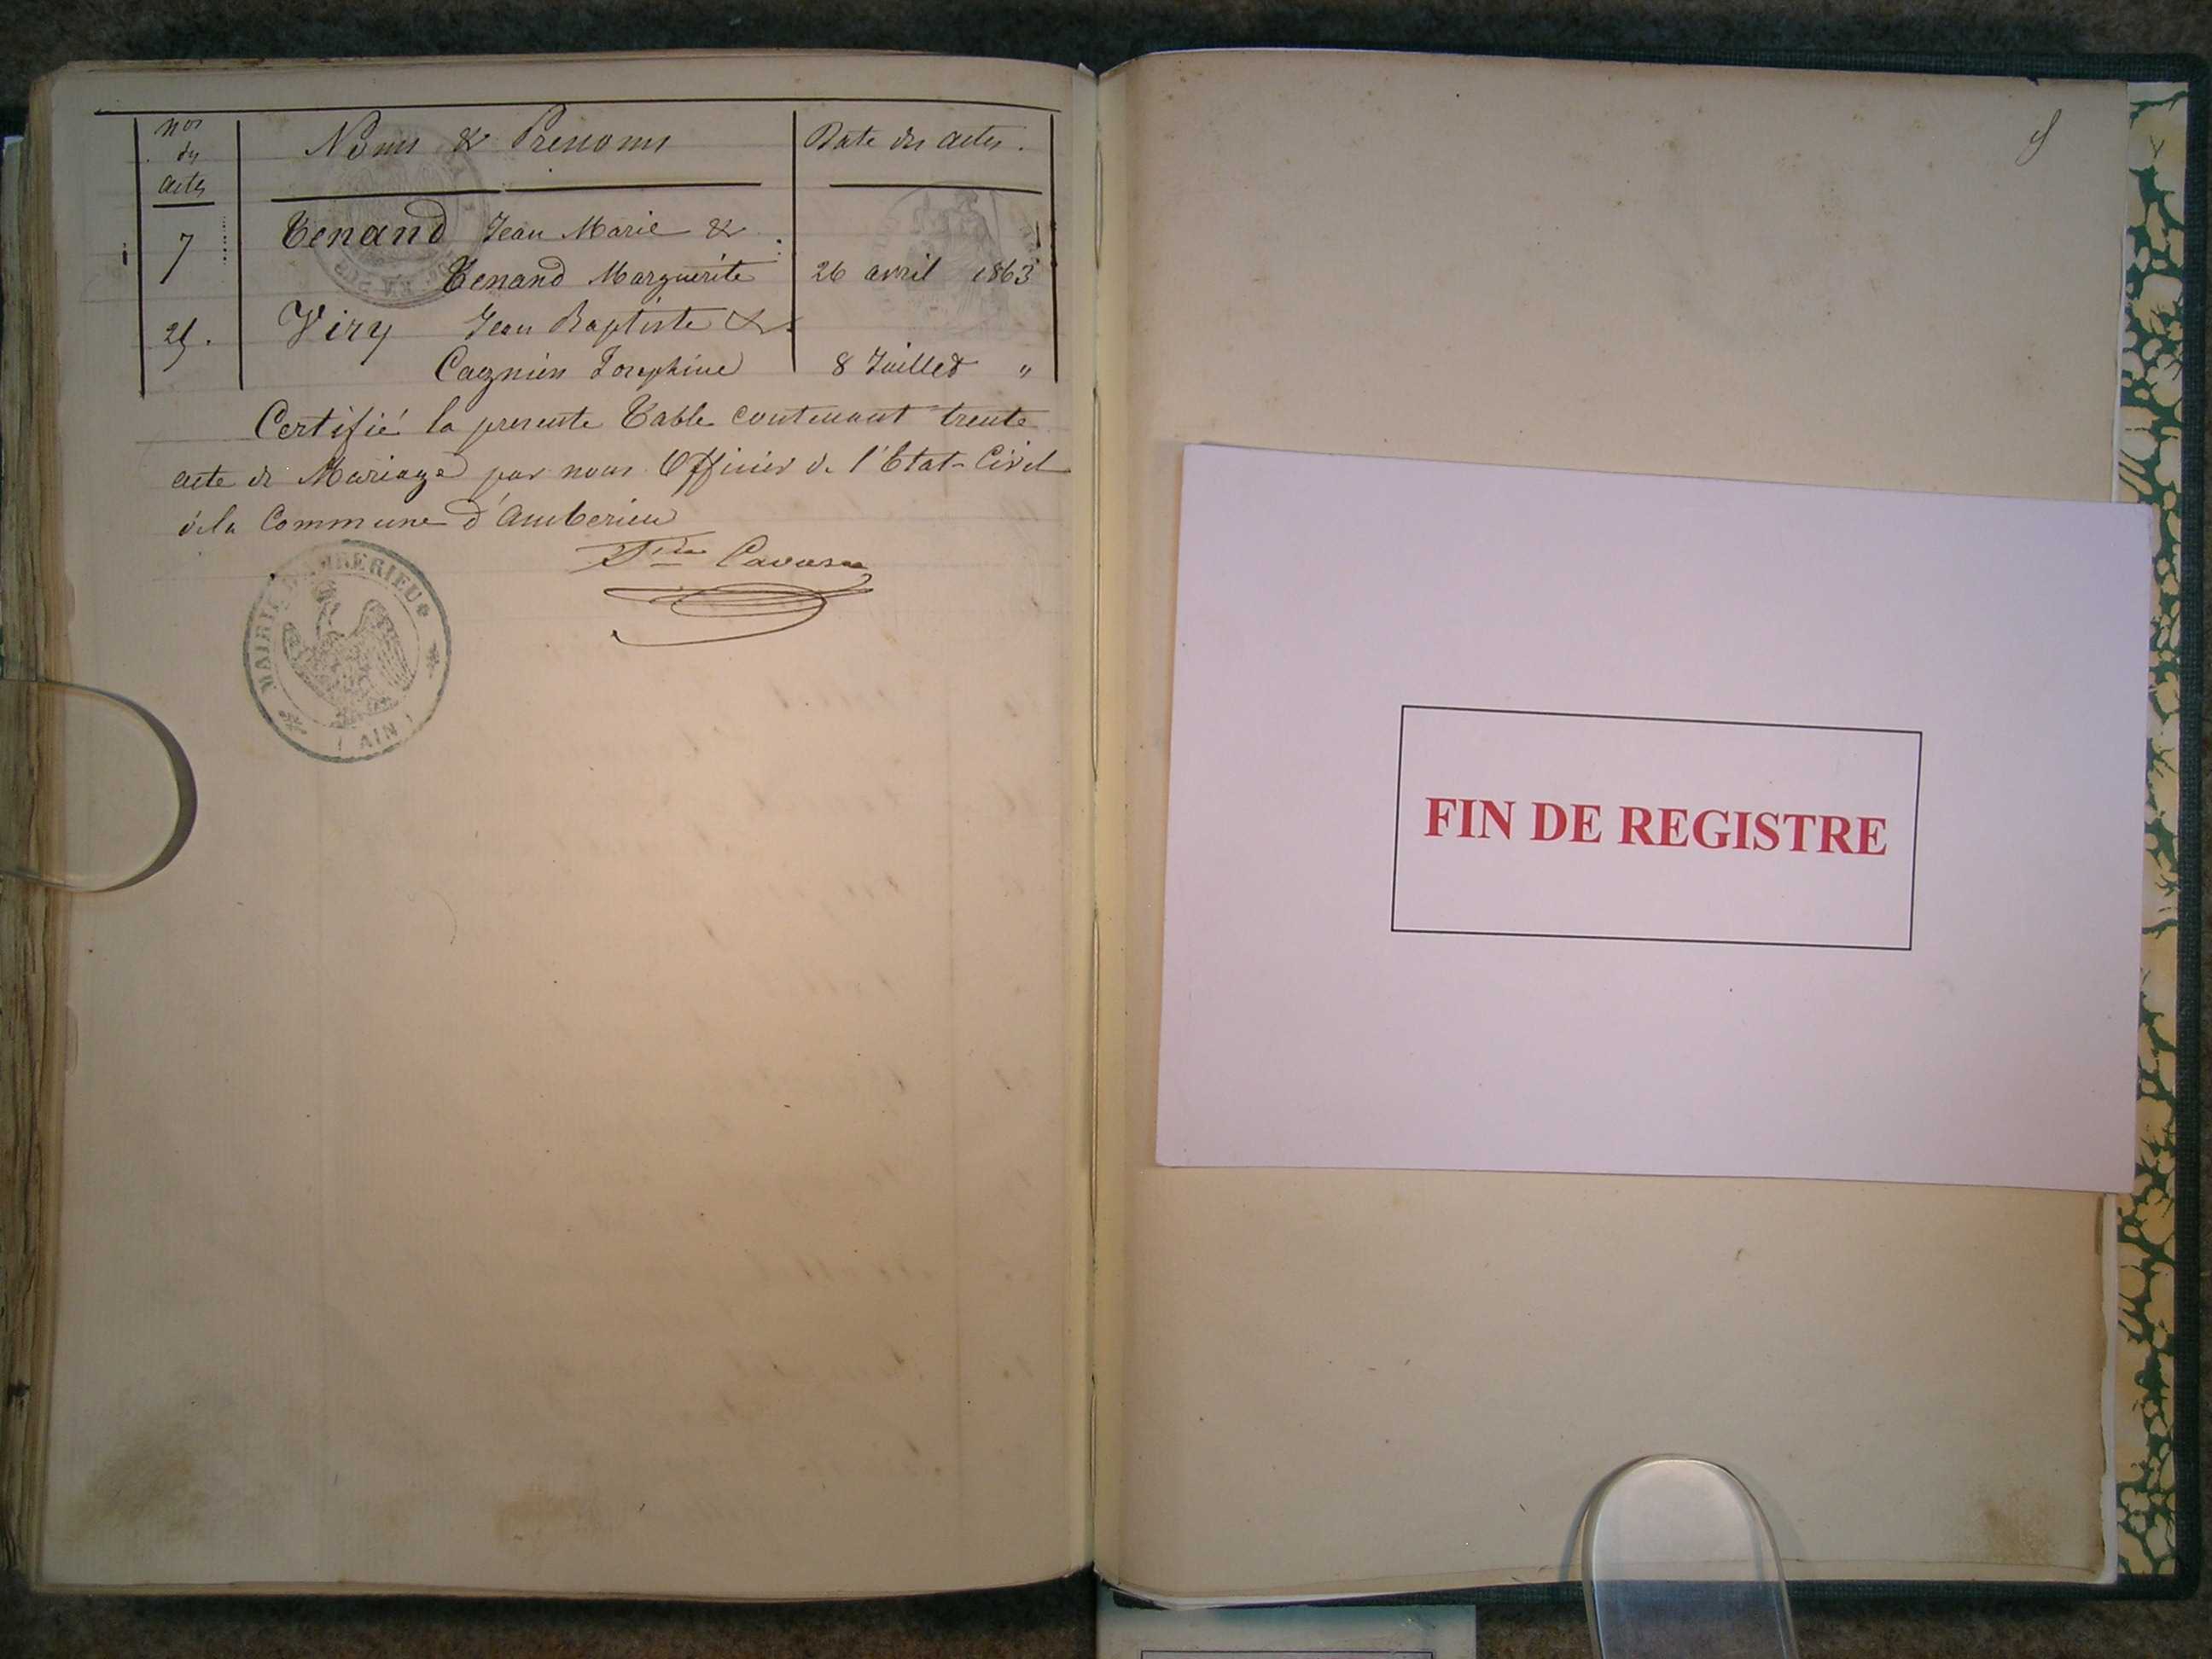 nos
des
actes
Noms & Prenoms
Date des actes.
7
Tenand Jean Marie &
Tenand Marguerite
26 avril 1863
Viry Jean Baptiste &
Josephine
8 Juillet "
Certifié la presente Table contenant trente
acte de Mariage par nous Officier de l'Etat-Civil
de la Commune d'Amberieu
MAIRIE D'AMBERIEU
(AIN)
FIN DE REGISTRE